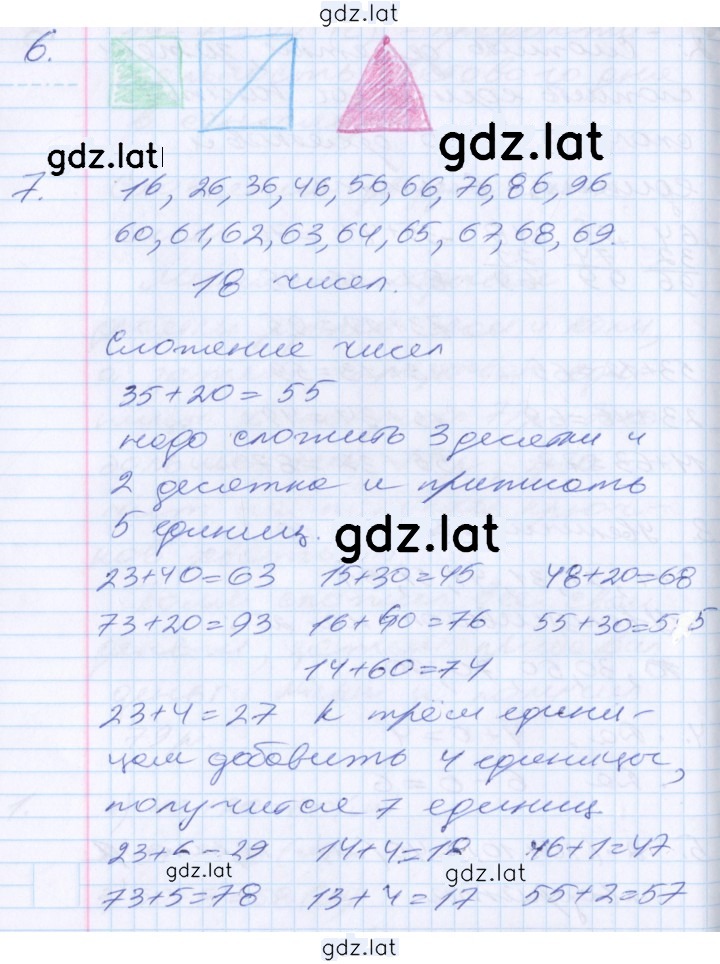 gdz.lat
6.
gdz.lat
gdz.lat
7. 16, 26, 36, 46, 56, 66, 76, 86, 96
60, 61, 62, 63, 64, 65, 67, 68, 69.
18 чисел.
Сложение чисел
35+20=55
надо сложить 3 десятки и
2 десятка и приписать
5 единиц.
gdz.lat
23+40=63 15+30=45 48+20=68
73+20=93 16+60=76 55+30=5 5
14+60=74
23+4=27 К трём едини-
цам добавить 4 единицы,
получится 7 единиц
23+6=29 14+4=18 46+1=47
gdz.lat
gdz.lat
73+5=78 13+4=17 55+2=57
gdz.lat